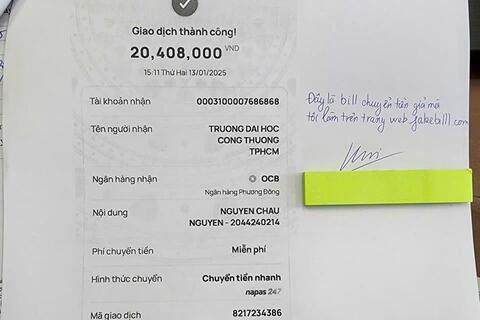 Giao dịch thành công!
20,408,000 VND
15:11 Thứ Hai 13/01/2025
Tài khoản nhận 0003100007686868
Tên người nhận TRUONG DAI HOC
CONG THUONG
TPHCM
Ngân hàng nhận OCB
Ngân hàng Phương Đông
Nội dung NGUYEN CHAU
NGUYEN - 2044240214
Phí chuyển tiền Miễn phí
Hình thức chuyển Chuyển tiền nhanh
napas 247
Mã giao dịch 8217234386
Đây là bill chuyển tiền giả mà
tôi làm trên trang web fakebill.com